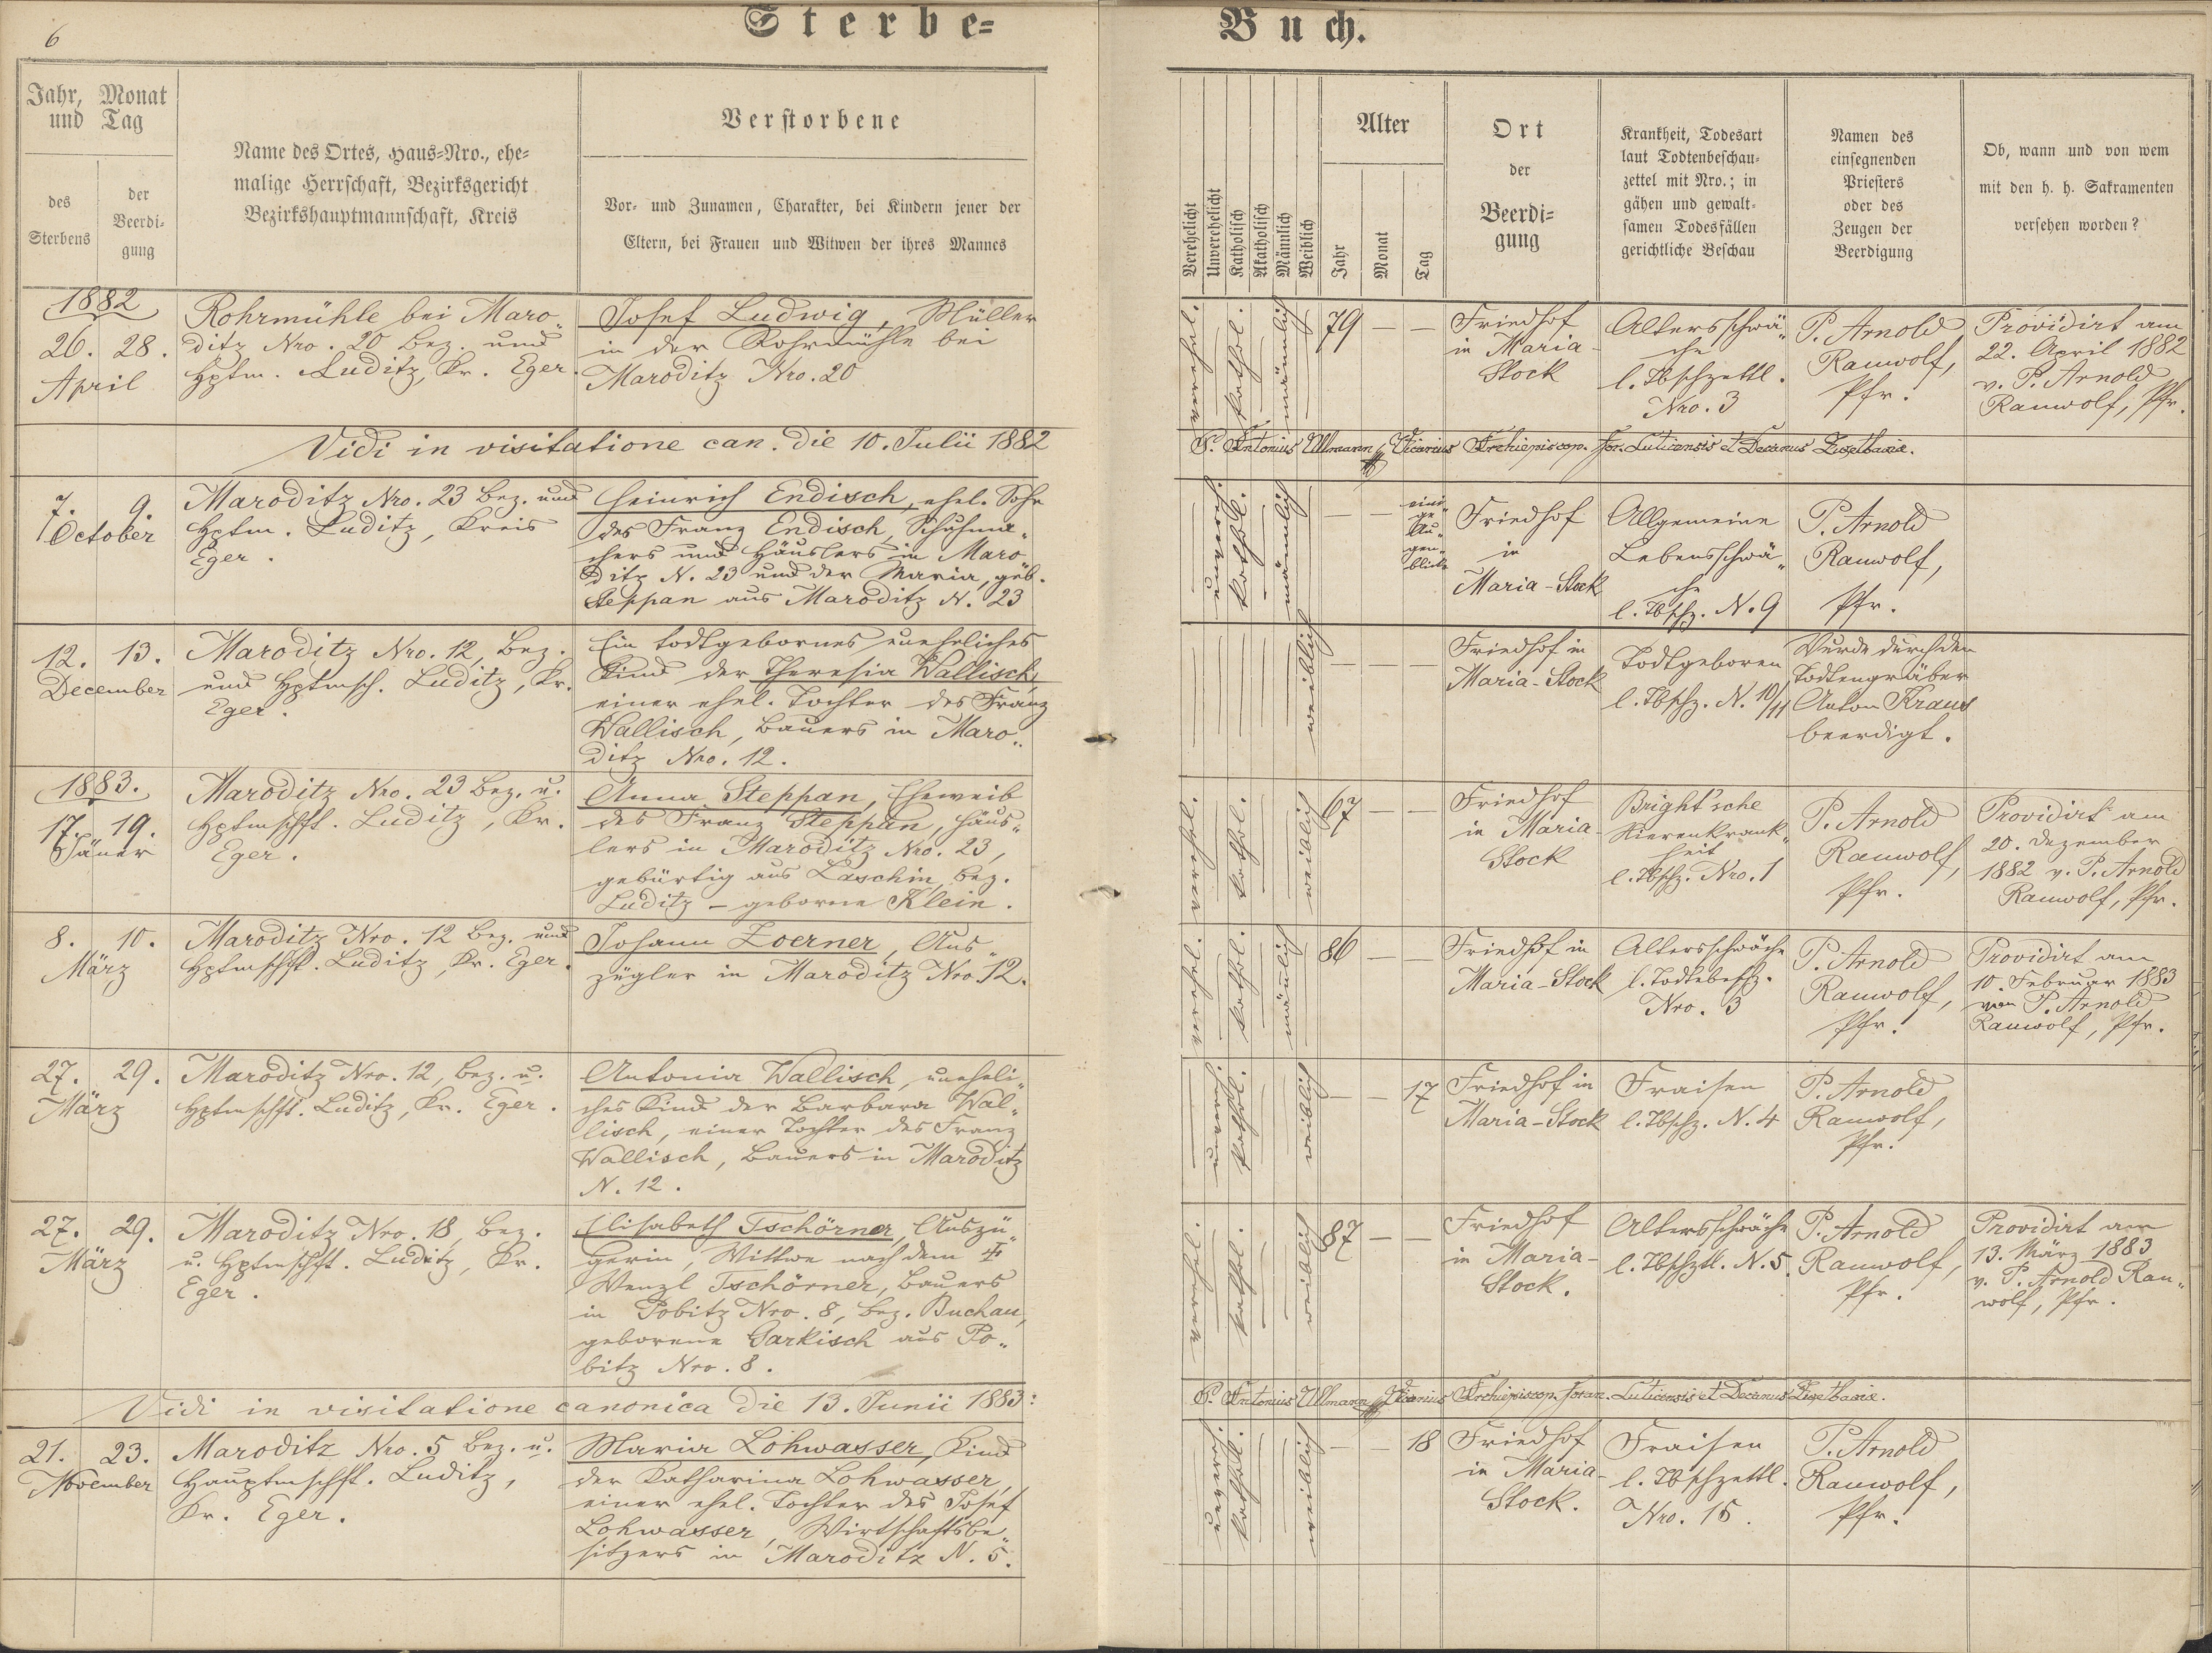 6
Sterbe-
Buch.
Jahr, Monat
und Tag
des
Sterbens
der
Beerdi-
gung
Name des Ortes, Haus-Nro., ehe-
malige Herrschaft, Bezirksgericht
Bezirkshauptmannschaft, Kreis
Verstorbene
Vor- und Zunamen, Charakter, bei Kindern jener der
Eltern, bei Frauen und Witwen der ihres Mannes
Verehelicht
Unverehelicht
Katholisch
Akatholisch
Männlich
Weiblich
Alter
Jahr
Monat
Tag
Ort
der
Beerdi-
gung
Krankheit, Todesart
laut Todtenbeschau-
zettel mit Nro.; in
gähen und gewalt-
samen Todesfällen
gerichtliche Beschau
Namen des
einsegnenden
Priesters
oder des
Zeugen der
Beerdigung
Ob, wann und von wem
mit den h. h. Sakramenten
versehen worden?
1882
26. 28.
April
Rohrmühle bei Maro„
ditz Nro. 20 Bez. und
Hptm. Luditz, Kr. Eger.
Josef Ludwig, Müller
in der Rohrmühle bei
Maroditz Nro. 20
verehel.
kathol.
männlich
79 — —
Friedhof
in Maria-
Stock
Altersschwä„
che
l. Tbschzettl.
Nro. 3
P. Arnold
Ranwolf,
Pfr.
Providirt am
22. April 1882
v. P. Arnold
Ranwolf, Pfr.
Vidi in visitatione can. die 10. Julii 1882
P. Antonius Ullmann, Vicarius Archiepiscop. for. Luticensis et Decanus
7. 9.
October
Maroditz Nro. 23 Bez. und
Hptm. Luditz, Kreis
Eger.
Heinrich Endisch, ehel. Sohn
des Franz Endisch, Schuhma„
chers und Häuslers in Maro„
ditz N. 23 und der Maria, geb.
Steppan aus Maroditz N. 23
unvereh.
kathol.
männlich
— —
eini„
ge
Au„
gen„
blicke
Friedhof
in
Maria-Stock
Allgemeine
Lebensschwä„
che
l. Tbschz. N. 9
P. Arnold
Ranwolf,
Pfr.
12. 13.
December
Maroditz Nro. 12, Bez.
und Hptmsch. Luditz, Kr.
Eger.
Ein todtgebornes uneheliches
Kind der Theresia Wallisch,
einer ehel. Tochter des Franz
Wallisch, Bauers in Maro„
ditz Nro. 12.
weiblich
— — —
Friedhof in
Maria-Stock
Todtgeboren
l. Tbschz. N. 10/11
Wurde durch den
Todtengräber
Anton Kraus
beerdigt.
1883.
17. 19.
Jäner
Maroditz Nro. 23 Bez. u.
Hptmschft. Luditz, Kr.
Eger.
Anna Steppan, Eheweib
des Franz Steppan, Häus„
lers in Maroditz Nro. 23,
gebürtig aus Laschin, Bez.
Luditz – geborene Klein.
verehel.
kathol.
weiblich
67 — —
Friedhof
in Maria-
Stock
Bright'sche
Nierenkrank„
heit
l. Tbschz. Nro. 1
P. Arnold
Ranwolf,
Pfr.
Providirt am
20. Dezember
1882 v. P. Arnold
Ranwolf, Pfr.
8. 10.
März
Maroditz Nro. 12 Bez. und
Hptmschft. Luditz, Kr. Eger.
Johann Zoerner, Aus„
zügler in Maroditz Nro. 12.
verehel.
kathol.
männlich
86 — —
Friedhof in
Maria-Stock
Altersschwäche
l. Todtebeschz.
Nro. 3
P. Arnold
Ranwolf,
Pfr.
Providirt am
10. Februar 1883
von P. Arnold
Ranwolf, Pfr.
27. 29.
März
Maroditz Nro. 12, Bez. u.
Hptmschft. Luditz, Kr. Eger.
Antonia Wallisch, uneheli„
ches Kind der Barbara Wal„
lisch, einer Tochter des Franz
Wallisch, Bauers in Maroditz
N. 12.
unvereh.
kathol.
weiblich
— — 17
Friedhof in
Maria-Stock
Fraisen
l. Tbschz. N. 4
P. Arnold
Ranwolf,
Pfr.
27. 29.
März
Maroditz Nro. 18, Bez.
u. Hptmschft. Luditz, Kr.
Eger.
Elisabeth Tschörner, Auszü„
gerin, Wittwe nach dem ‡
Wenzl Tschörner, Bauers
in Pobitz Nro. 8, Bez. Buchau,
geborene Garkisch aus Po„
bitz Nro. 8.
verehel.
kathol.
weiblich
87 — —
Friedhof
in Maria-
Stock.
Altersschwäche
l. Tbschztl. N. 5.
P. Arnold
Ranwolf,
Pfr.
Providirt am
13. März 1883
v. P. Arnold Ran„
wolf, Pfr.
Vidi in visitatione canonica die 13. Junii 1883:
P. Antonius Ullmann, Vicarius Archiepiscop. foran. Luticensis et Decanus
21. 23.
November
Maroditz Nro. 5 Bez. u.
Hauptmschft. Luditz,
Kr. Eger.
Maria Lohwasser, Kind
der Katharina Lohwasser,
einer ehel. Tochter des Josef
Lohwasser, Wirtschaftsbe„
sitzers in Maroditz N. 5.
unvereh.
kathol.
weiblich
— — 18
Friedhof
in Maria-
Stock.
Fraisen
l. Tbschzettl.
Nro. 15.
P. Arnold
Ranwolf,
Pfr.